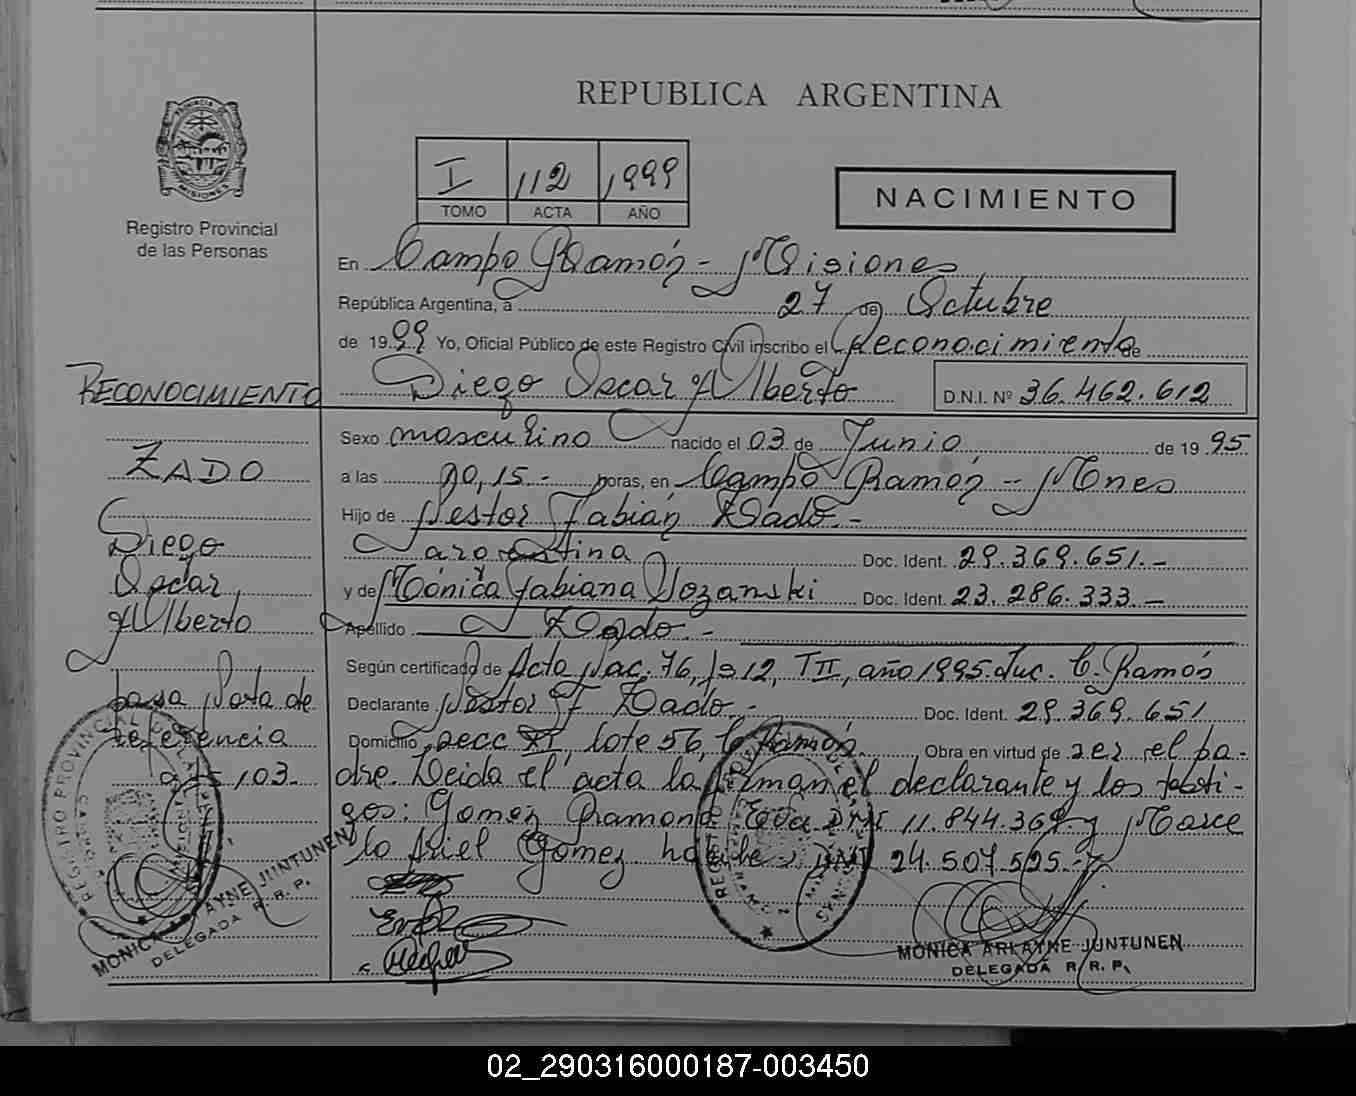 REPUBLICA ARGENTINA
PROVINCIA DE
MISIONES
Registro Provincial
de las Personas
I 112 1999
TOMO ACTA AÑO
NACIMIENTO
En Campo Ramón - Misiones
República Argentina, a 27 de Octubre
de 1999 Yo, Oficial Público de este Registro Civil inscribo el Reconocimiento de
Diego Oscar Alberto D.N.I. Nº 36.462.612
RECONOCIMIENTO
ZADO
Diego
Oscar
Alberto
pasa Nota de
referencia
103.
Sexo masculino nacido el 03 de Junio de 1995
a las 20,15.- horas, en Campo Ramón - Mnes
Hijo de Nestor Fabián Zado.-
argentina Doc. Ident. 29.369.651.-
y de Mónica Fabiana Dozanski Doc. Ident. 23.286.333.-
Apellido Zado.-
Según certificado de Acta Nac. 76, Fs 12, TII, año 1995. Juc. C. Ramón
Declarante Nestor F Zado.- Doc. Ident. 29.369.651
Domicilio secc XI, lote 56, C. Ramón. Obra en virtud de ser el pa-
dre. Leida el acta la firman el declarante y los testi-
gos: Gomez Ramona Eva DNI 11.844.369 y Marce
lo Ariel Gomez DNI 24.507.525.-
REGISTRO PROVINCIAL DE LAS PERSONAS
MISIONES
MONICA ARLAYNE JUNTUNEN
DELEGADA R. R. P.
MONICA ARLAYNE JUNTUNEN
DELEGADA R. R. P.
02_290316000187-003450